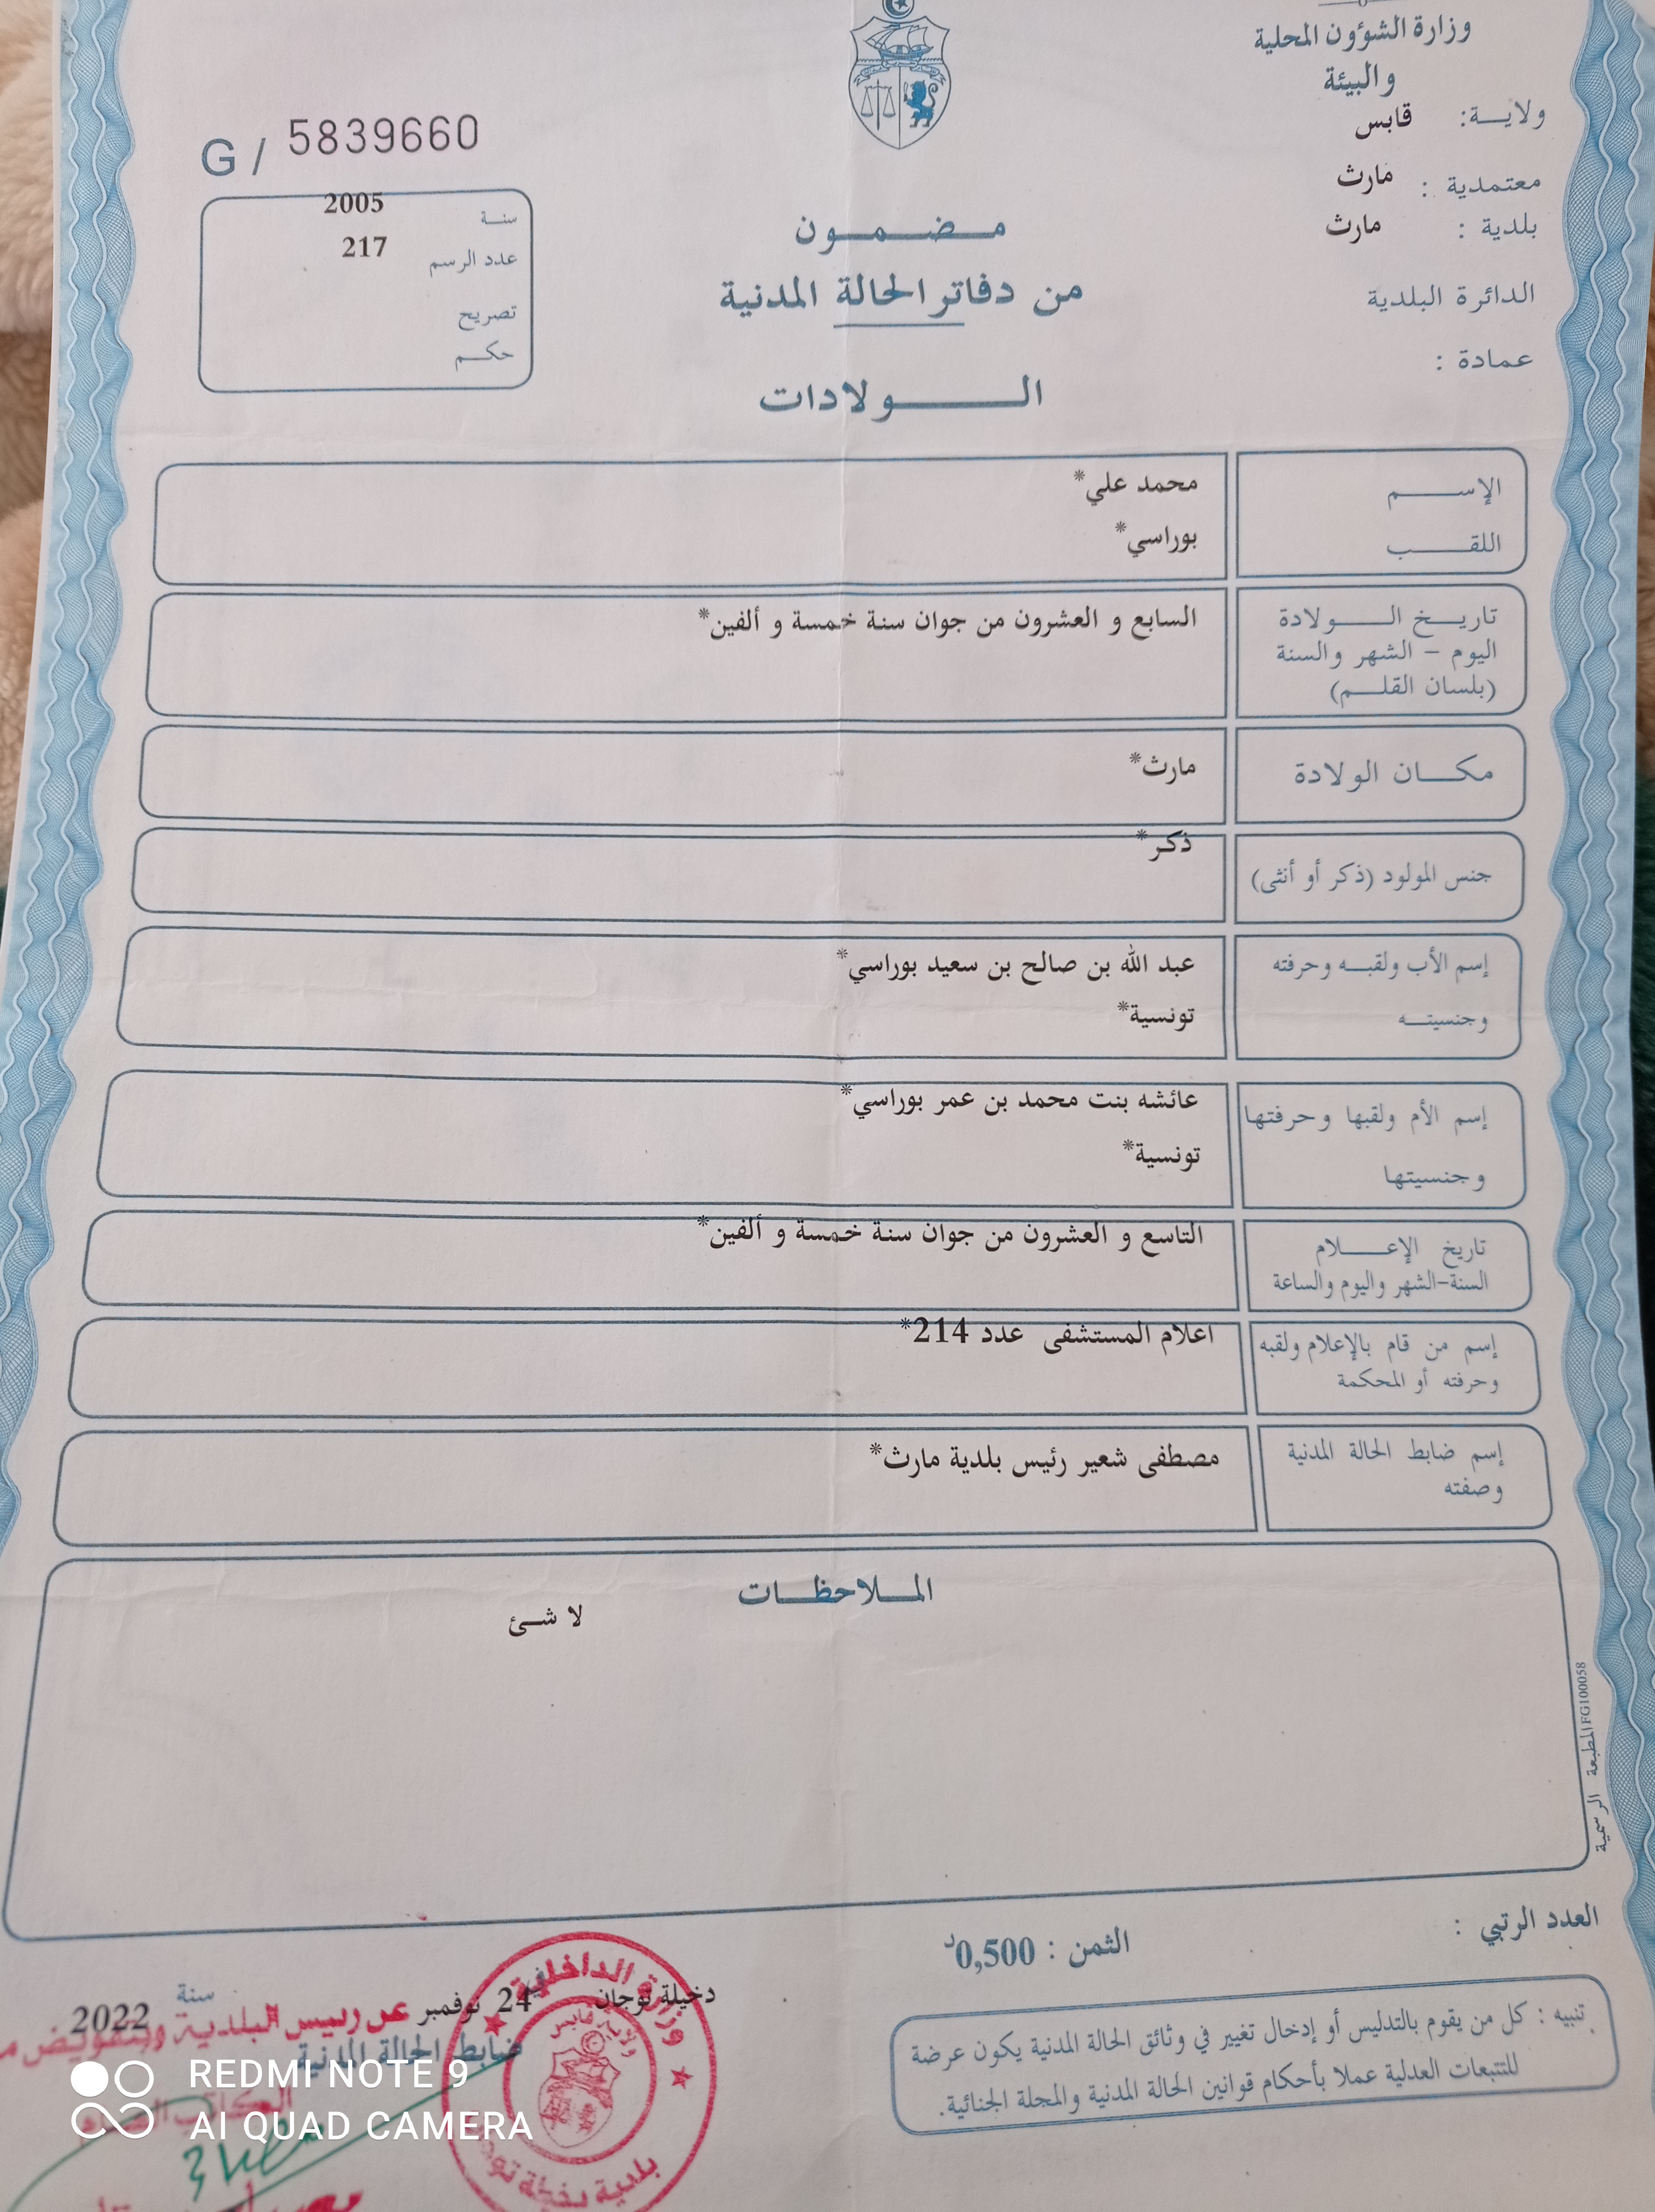 وزارة الشؤون المحلية
والبيئة
ولايــة: قابس
معتمدية : مارث
بلدية : مارث
الدائرة البلدية
عمادة :
G / 5839660
سنة 2005
عدد الرسم 217
تصريح
حكم
مضمون
من دفاتر الحالة المدنية
الولادات
الإسم محمد علي*
اللقب بوراسي*
تاريخ الولادة السابع و العشرون من جوان سنة خمسة و ألفين*
اليوم – الشهر والسنة
(بلسان القلم)
مكان الولادة مارث*
جنس المولود (ذكر أو أنثى) ذكر*
إسم الأب ولقبه وحرفته عبد الله بن صالح بن سعيد بوراسي*
وجنسيته تونسية*
إسم الأم ولقبها وحرفتها عائشه بنت محمد بن عمر بوراسي*
وجنسيتها تونسية*
تاريخ الإعلام التاسع و العشرون من جوان سنة خمسة و ألفين*
السنة-الشهر واليوم والساعة
إسم من قام بالإعلام ولقبه اعلام المستشفى عدد 214*
وحرفته أو المحكمة
إسم ضابط الحالة المدنية مصطفى شعير رئيس بلدية مارث*
وصفته
الملاحظات
لا شئ
المطبعة الرسمية FG100058
العدد الرتبي :
الثمن : 0,500د
تنبيه : كل من يقوم بالتدليس أو إدخال تغيير في وثائق الحالة المدنية يكون عرضة
للتتبعات العدلية عملا بأحكام قوانين الحالة المدنية والمجلة الجنائية.
دخيلة توجان في 24 نوفمبر سنة 2022
ضابط الحالة المدنية
عن رئيس البلدية وبتفويض
الكاتب العام
وزارة الداخلية
ولاية قابس
بلدية دخيلة
REDMI NOTE 9
AI QUAD CAMERA